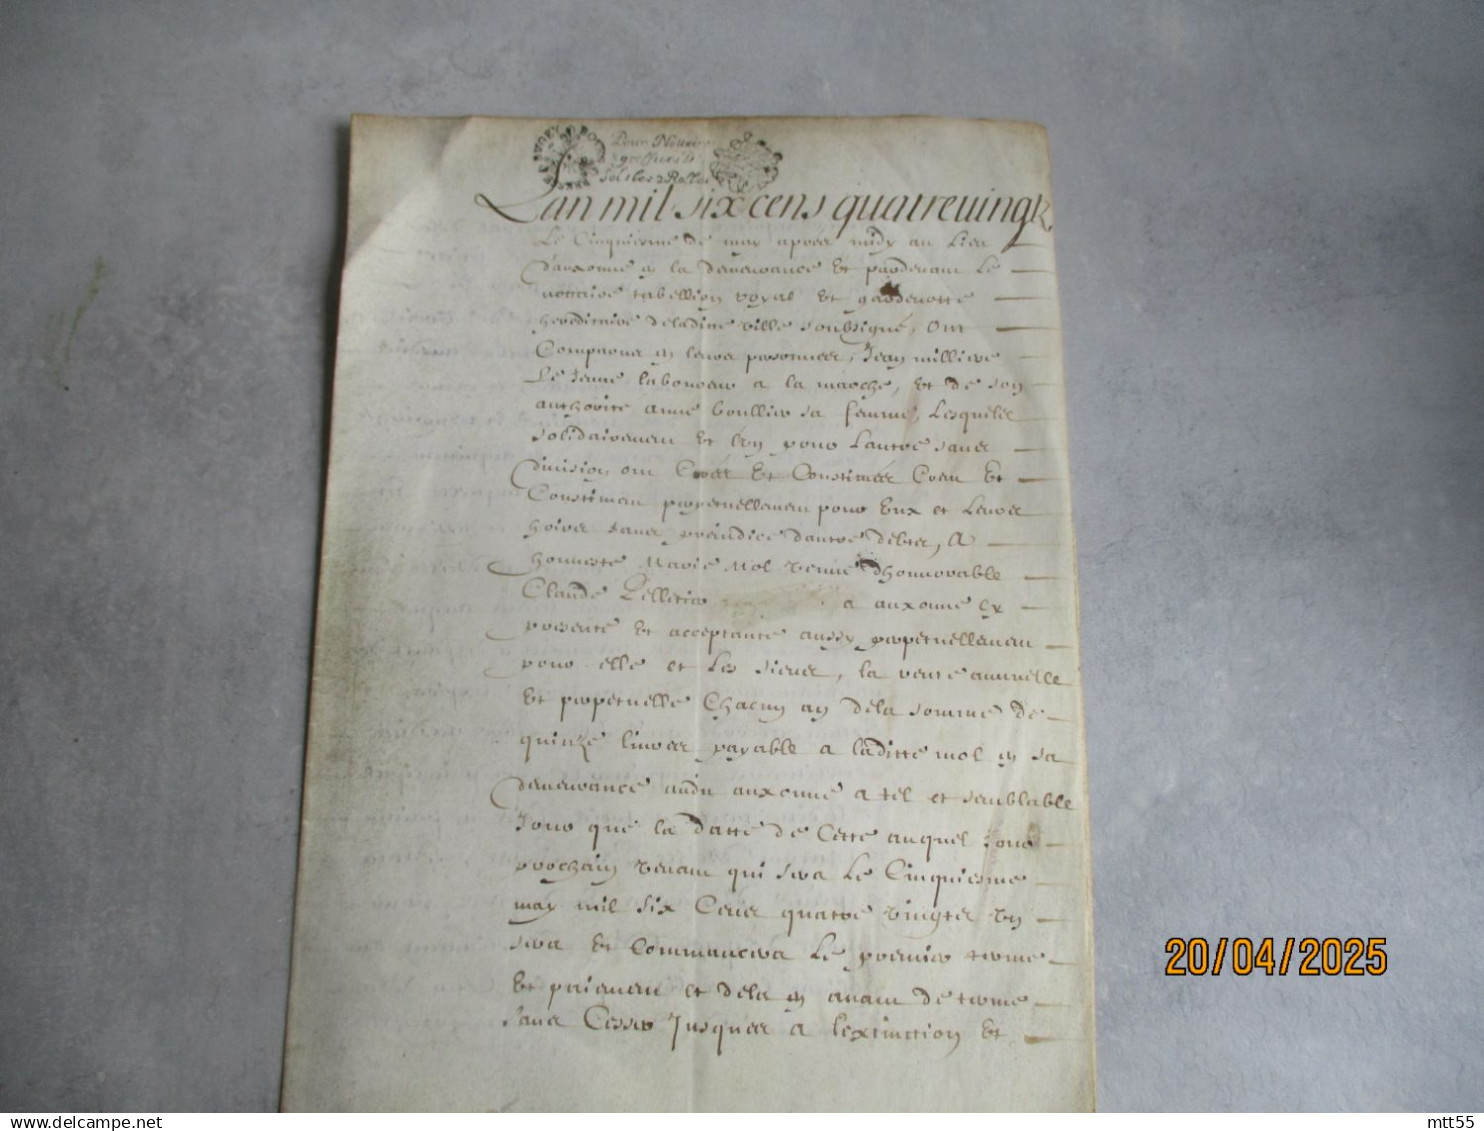 Pour Nottaires
Lan mil six cens quatrevingt
Le Cinquiesme de may apres midy au lieu
dauxonne en la demeurance et pardevant le
nottaire tabellion royal et gardenotte
hereditaire deladitte ville soubsigné, ont
Comparut en leurs personnes, Jean milliere
Le Jeune laboureur a la marche, et de son
authorité anne boullier sa femme, lesquels
solidairement et lun pour lautre sans
division ont Creés et Constitués Creent et
Constituent perpetuellement pour Eux et leurs
hoirs sans preiudice dautre debtes, A
honneste Marie Mol vefve dhonnorable
Claude Pelletier a auxonne cy
presente et acceptante aussy perpetuellement
pour elle et les siens, la rente annuelle
et perpetuelle Chacun an dela somme de
quinze livres payable a laditte mol en sa
demeurance audit auxonne a tel et semblable
Jour que la datte de Cette auquel Jour
prochain venant qui sera le Cinquiesme
may mil six Cens quatre vingts un
sera et Commancera le premier terme
et paiement et dela en avant de terme
sans Cesser Jusques a lextinction et
20/04/2025
mtt55